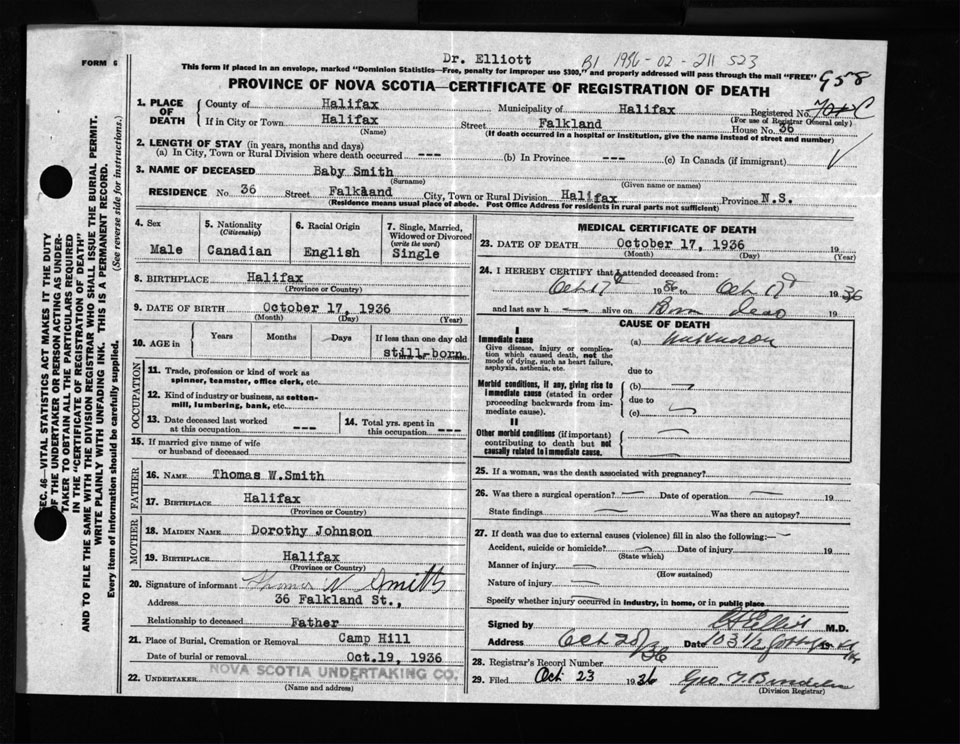 Dr. Elliott
B1 1936-02-211 523
FORM 6
This form if placed in an envelope, marked "Dominion Statistics—Free, penalty for improper use $300," and properly addressed will pass through the mail "FREE"
958
PROVINCE OF NOVA SCOTIA—CERTIFICATE OF REGISTRATION OF DEATH
1. PLACE OF DEATH
County of Halifax Municipality of Halifax Registered No.
(For use of Registrar General only)
If in City or Town Halifax Street Falkland House No. 36
(Name) (If death occurred in a hospital or institution, give the name instead of street and number)
2. LENGTH OF STAY (in years, months and days)
(a) In City, Town or Rural Division where death occurred --- (b) In Province --- (c) In Canada (if immigrant)
3. NAME OF DECEASED Baby Smith
(Surname) (Given name or names)
RESIDENCE No. 36 Street Falkland City, Town or Rural Division Halifax Province N.S.
(Residence means usual place of abode. Post Office Address for residents in rural parts not sufficient)
4. Sex
Male
5. Nationality
(Citizenship)
Canadian
6. Racial Origin
English
7. Single, Married,
Widowed or Divorced
(write the word)
Single
8. BIRTHPLACE Halifax
(Province or Country)
9. DATE OF BIRTH October 17, 1936
(Month) (Day) (Year)
10. AGE in Years Months Days If less than one day old
still-born
OCCUPATION
11. Trade, profession or kind of work as
spinner, teamster, office clerk, etc.
12. Kind of industry or business, as cotton-
mill, lumbering, bank, etc.
13. Date deceased last worked
at this occupation ---
14. Total yrs. spent in
this occupation ---
15. If married give name of wife
or husband of deceased
FATHER
16. NAME Thomas W. Smith
17. BIRTHPLACE Halifax
(Province or Country)
MOTHER
18. MAIDEN NAME Dorothy Johnson
19. BIRTHPLACE Halifax
(Province or Country)
20. Signature of informant Thomas W Smith
Address 36 Falkland St.,
Relationship to deceased Father
21. Place of Burial, Cremation or Removal Camp Hill
Date of burial or removal Oct.19, 1936
22. UNDERTAKER NOVA SCOTIA UNDERTAKING CO.
(Name and address)
MEDICAL CERTIFICATE OF DEATH
23. DATE OF DEATH October 17, 1936 19
(Month) (Day) (Year)
24. I HEREBY CERTIFY that I attended deceased from:
Oct 17 1936 to Oct 17 1936
and last saw h — alive on Born dead 19
CAUSE OF DEATH
I
Immediate cause
Give disease, injury or complica-
tion which caused death, not the
mode of dying, such as heart failure,
asphyxia, asthenia, etc.
(a) unknown
due to
Morbid conditions, if any, giving rise to
immediate cause (stated in order
proceeding backwards from im-
mediate cause).
(b)
due to
(c)
II
Other morbid conditions (if important)
contributing to death but not
causally related to immediate cause.
25. If a woman, was the death associated with pregnancy?
26. Was there a surgical operation? — Date of operation — 19
State findings — Was there an autopsy?
27. If death was due to external causes (violence) fill in also the following:—
Accident, suicide or homicide? Date of injury 19
(State which)
Manner of injury
(How sustained)
Nature of injury
Specify whether injury occurred in industry, in home, or in public place
Signed by Elliott M.D.
Address Oct 20/36 Date 103 1/2
28. Registrar's Record Number
29. Filed Oct 23 1936 Geo.
(Division Registrar)
SEC. 46—VITAL STATISTICS ACT MAKES IT THE DUTY
OF THE UNDERTAKER OR PERSON ACTING AS UNDER-
TAKER TO OBTAIN ALL THE PARTICULARS REQUIRED
IN THE "CERTIFICATE OF REGISTRATION OF DEATH"
AND TO FILE THE SAME WITH THE DIVISION REGISTRAR WHO SHALL ISSUE THE BURIAL PERMIT.
WRITE PLAINLY WITH UNFADING INK. THIS IS A PERMANENT RECORD.
Every item of information should be carefully supplied. (See reverse side for instructions.)